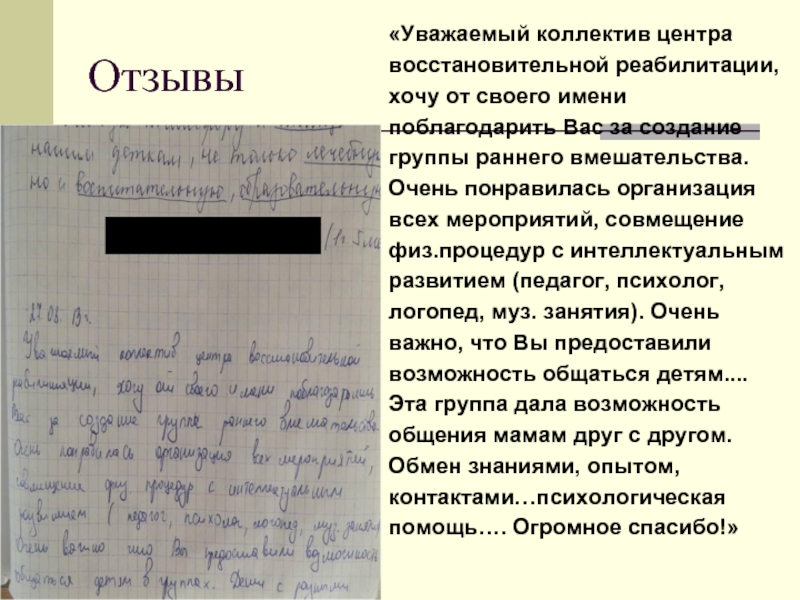 Отзывы
нашим деткам, не только лечебную
но и воспитательную, образовательную
27.08. 13 г.
Уважаемый коллектив центра восстановительной
реабилитации, хочу от своего имени поблагодарить
Вас за создание группы раннего вмешательства
Очень понравилась организация всех мероприятий,
совмещение физ. процедур с интеллектуальным
развитием ( педагог, психолог, логопед, муз. занят
Очень важно что Вы предоставили возможность
общаться детям в группах. Дети с разными
«Уважаемый коллектив центра
восстановительной реабилитации,
хочу от своего имени
поблагодарить Вас за создание
группы раннего вмешательства.
Очень понравилась организация
всех мероприятий, совмещение
физ.процедур с интеллектуальным
развитием (педагог, психолог,
логопед, муз. занятия). Очень
важно, что Вы предоставили
возможность общаться детям....
Эта группа дала возможность
общения мамам друг с другом.
Обмен знаниями, опытом,
контактами…психологическая
помощь…. Огромное спасибо!»